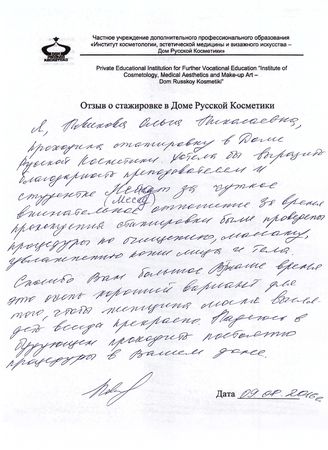 Частное учреждение дополнительного профессионального образования
«Институт косметологии, эстетической медицины и визажного искусства –
Дом Русской Косметики»
Private Educational Institution for Further Vocational Education "Institute of
Cosmetology, Medical Aesthetics and Make-up Art –
Dom Russkoy Kosmetiki"
Отзыв о стажировке в Доме Русской Косметики
Я, Новикова Ольга Николаевна,
проходила стажировку в Доме
Русской Косметики. Хотела бы выразить
благодарность преподавателем и
студентке за чуткое
внимательное отношение. За время
прохождения стажировки были проведены
процедуры по очищению, массажу,
увлажнению кожи лица и тела.
Спасибо Вам большое В наше время
это очень хороший вариант для
того, чтобы женщина могла выгля-
деть всегда прекрасно. Надеюсь в
будующем проходить постоянно
процедуры в Вашем доме.
Дата 09.08.2016г